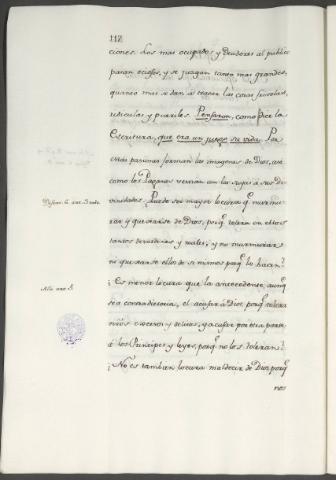 112
ciones. Los mas ocupados y deudores al publico
pasan ociosos, y se juzgan tanto mas grandes,
quanto mas se dan á tratar las cosas frivolas,
ridiculas y pueriles. Pensaron, como dice la
Escritura, que era un juego su vida. Por
sus pasiones forman las imagenes de Dios, así
como los Paganos venian con las suyas á sus Di-
vinidades. Puede ser mayor locura q.e murmu-
rar y quexarse de Dios, porq.e tolera en ellos
tantos desordenes y males; y no murmurar
ni quexarse ellos de si mismos porq.e lo hacen?
¿Es menor locura que la antecedente, aunq.e
sea contradictoria, el acusar á Dios, porq.e tolera
excesos y delitos, y acusar por otra parte
á los Principes y leyes, porq.e no los toleran?
¿No es tambien locura maldecir de Dios, porq.e
nos